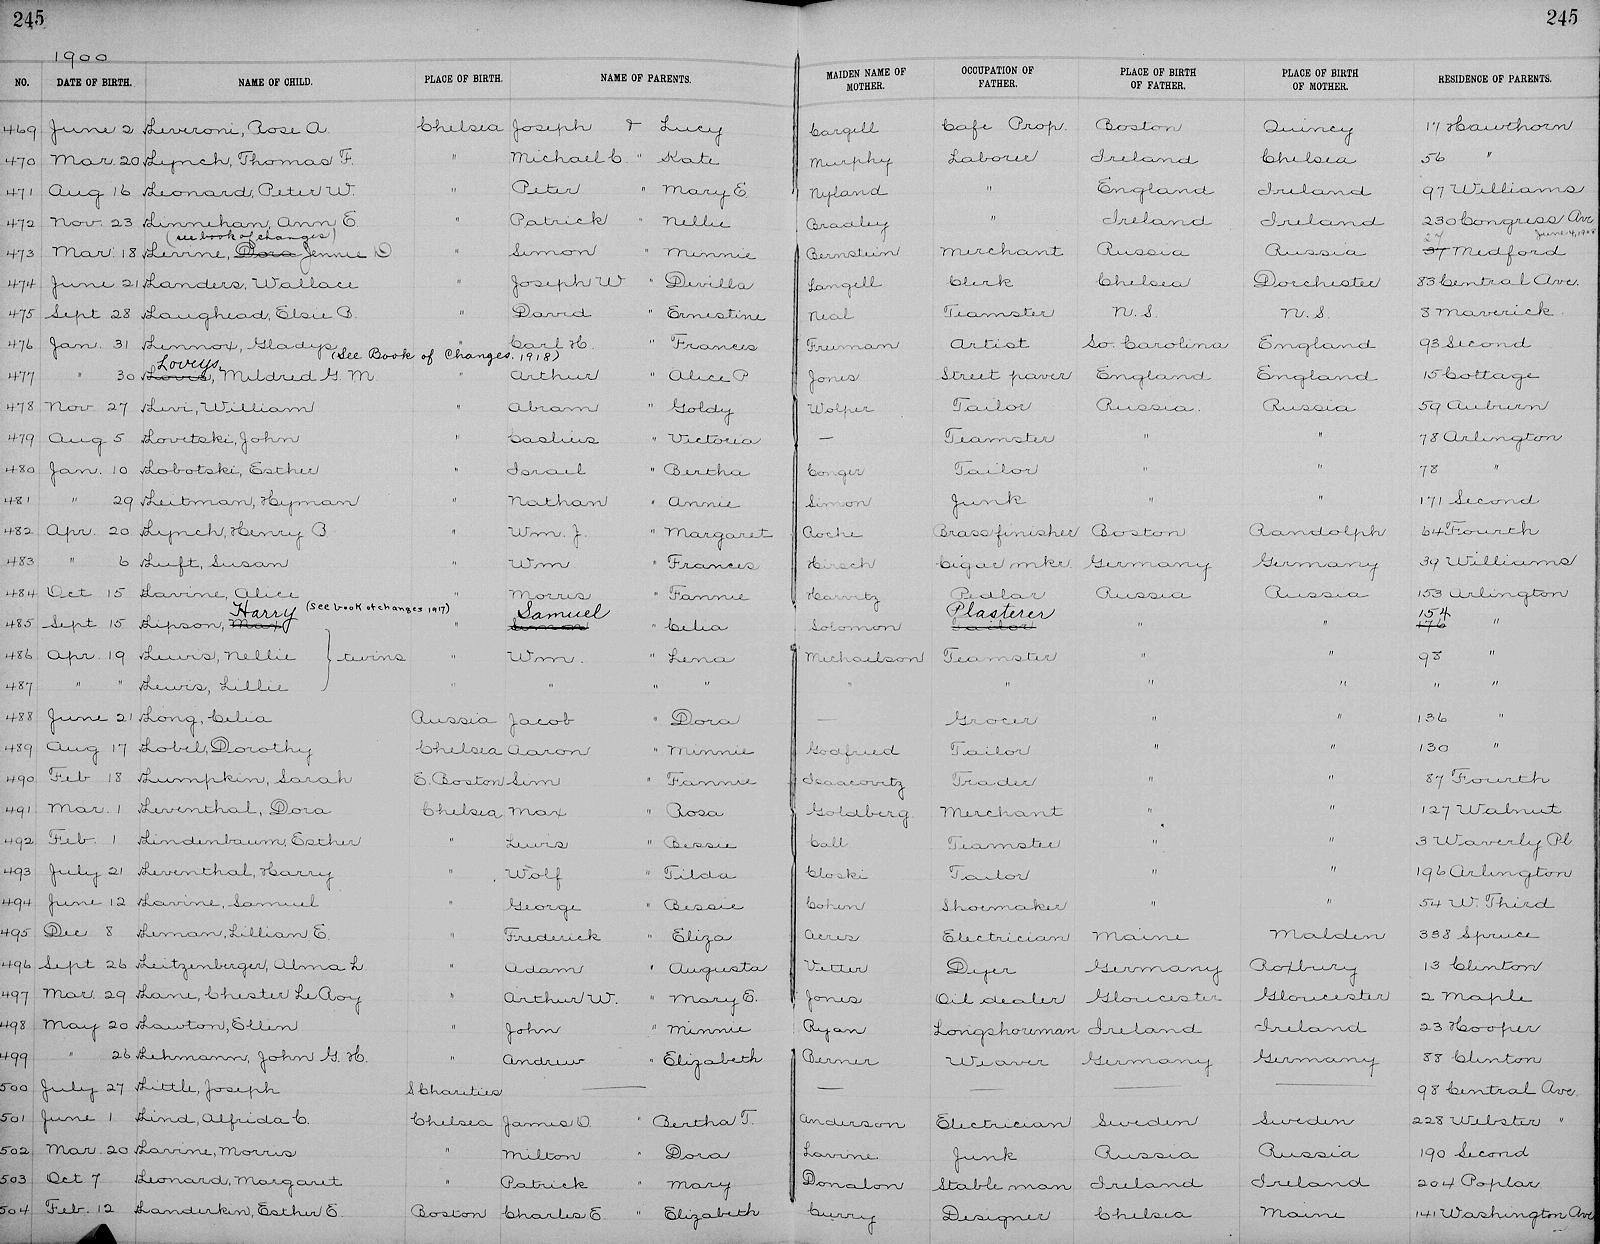 245 245
1900
NO. DATE OF BIRTH. NAME OF CHILD. PLACE OF BIRTH. NAME OF PARENTS. MAIDEN NAME OF MOTHER. OCCUPATION OF FATHER. PLACE OF BIRTH OF FATHER. PLACE OF BIRTH OF MOTHER. RESIDENCE OF PARENTS.
469 June 2 Leveroni, Rose A. Chelsea Joseph & Lucy Cargill Cafe Prop. Boston Quincy 17 Hawthorn
470 Mar. 20 Lynch, Thomas F. " Michael C. " Kate Murphy Laborer Ireland Chelsea 56 "
471 Aug 16 Leonard, Peter W. " Peter " Mary E. Nyland " England Ireland 97 Williams
472 Nov. 23 Linnehan, Ann E. " Patrick " Nellie Bradley " Ireland Ireland 230 Congress Ave
(see book of changes) 27 June 4, 1908
473 Mar. 18 Levine, Dora Jennie D " Simon " Minnie Bernstein Merchant Russia Russia 37 Medford
474 June 21 Landers, Wallace " Joseph W " Devilla Langell Clerk Chelsea Dorchester 83 Central Ave.
475 Sept 28 Laughead, Elsie B. " David " Ernestine Neal Teamster N.S. N.S. 8 Maverick
476 Jan. 31 Lennox, Gladys " Carl H. " Frances Freeman Artist So. Carolina England 93 Second
Loveys (See Book of Changes. 1918)
477 " 30 Lovis, Mildred G. M. " Arthur " Alice P Jones Street paver England England 15 Cottage
478 Nov 27 Levi, William " Abram " Goldy Wolper Tailor Russia. Russia 59 Auburn
479 Aug 5 Lovetski, John " Caslius " Victoria — Teamster " " 78 Arlington
480 Jan. 10 Lobotski, Esther " Israel " Bertha Conger Tailor " " 78 "
481 " 29 Leitman, Hyman " Nathan " Annie Simon Junk " " 171 Second
482 Apr. 20 Lynch, Henry B. " Wm. J. " Margaret Roche Brass finisher Boston Randolph 64 Fourth
483 " 6 Luft, Susan " Wm " Frances Hirsch Cigar mkr. Germany Germany 39 Williams
484 Oct 15 Lavine, Alice " Morris " Fannie Harvitz Pedlar Russia Russia 153 Arlington
Harry (See book of changes 1917) Samuel Plasterer 154
485 Sept 15 Lipson, Max " Simon " Celia Solomon Tailor " " 176 "
486 Apr. 19 Lewis, Nellie } twins " Wm. " Lena Michaelson Teamster " " 98 "
487 " " Lewis, Lillie " " " " " " " " " "
488 June 21 Long, Celia Russia Jacob " Dora — Grocer " " 136 "
489 Aug 17 Lobel, Dorothy Chelsea Aaron " Minnie Godfried Tailor " " 130 "
490 Feb 18 Lumpkin, Sarah E. Boston Sim " Fannie Isaacovitz Trader " " 87 Fourth
491 Mar. 1 Leventhal, Dora Chelsea Max " Rosa Goldberg Merchant " " 127 Walnut
492 Feb. 1 Lindenbaum, Esther " Lewis " Bessie Call Teamster " " 3 Waverly Pl
493 July 21 Leventhal, Harry " Wolf " Tilda Closki Tailor " " 196 Arlington
494 June 12 Lavine, Samuel " George " Bessie Cohen Shoemaker " " 54 W. Third
495 Dec 8 Leman, Lillian E. " Frederick " Eliza Acres Electrician Maine Malden 338 Spruce
496 Sept 26 Leitzenberger, Alma L. " Adam " Augusta Vetter Dyer Germany Roxbury 13 Clinton
497 Mar. 29 Lane, Chester LeRoy " Arthur W. " Mary E. Jones Oil dealer Gloucester Gloucester 2 Maple
498 May 20 Lawton, Ellen " John " Minnie Ryan Longshoreman Ireland Ireland 23 Hooper
499 " 26 Lehmann, John G. H. " Andrew " Elizabeth Berner Weaver Germany Germany 88 Clinton
500 July 27 Little, Joseph S Charities — — — — — 98 Central Ave.
501 June 1 Lind, Alfrida C. Chelsea James O. " Bertha T. Anderson Electrician Sweden Sweden 228 Webster "
502 Mar. 20 Lavine, Morris " Milton " Dora Lavine Junk Russia Russia 190 Second
503 Oct 7 Leonard, Margaret " Patrick " Mary Donalon Stable man Ireland Ireland 204 Poplar
504 Feb. 12 Landerkin, Esther E. Boston Charles E. " Elizabeth Curry Designer Chelsea Maine 141 Washington Ave